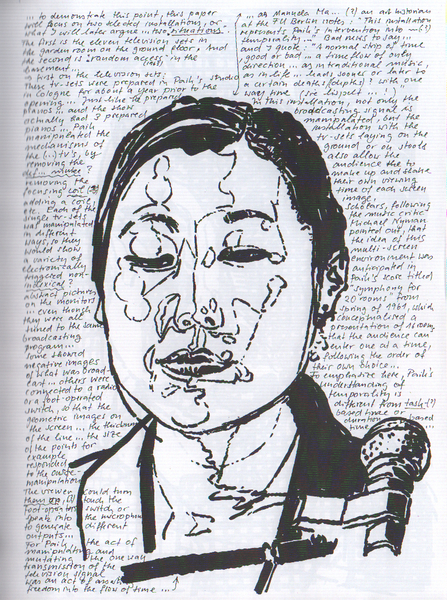 ... to demonstrate this point, this paper
will focus on two selected installations, or
what I will later argue ... two situations.
The first is the eleven television sets in
the garden room on the ground floor, and
the second is 'random access' in the
basement ...
... first on the television sets:
These tv-sets were prepared in Paik's studio
in Cologne for about a year prior to the
opening ... Just like the prepared
pianos ... and the show
actually had 3 prepared
pianos ... Paik
manipulated the
mechanisms of
the (..) tv's, by
removing the
removing the
focusing coil
adding a coil,
etc. Each of the
single tv-sets
was manipulated
in different
ways, so they
would show
a variety of
electronically
triggered non-
indexical
abstract pictures
on the monitors
... even though
they were all
tuned to the same
broadcasting
program ...
Some showed
negative images
of what was broad-
cast ... others were
connected to a radio
or a foot-operated
switch, so that the
geometric images on
the screen ... the thickness
of the line ... the size
of the points for
example
responded
to the
manipulation
The viewer could turn
touch the
switch, or
speak into the microphone
to generate different
outputs ...
For Paik, the act of
manipulating and
mutating the one way
transmission of the
television signal
was an act of
freedom into the flow of time ...
... as Manuela ... (?) an art historian
at the FU Berlin notes: "This installation
represents Paik's intervening into (?)
temporality ... Paik used to say ...
and I quote: "A normal strip of time
good or bad ... a time flow of only
direction ... as in traditional music,
as in life ... leads sooner or later to
a certain death, (dépths)? with one
way time (he hisself ...)."
In this installation, not only the
broadcasting signal is
manipulated, but the
installation with the
tv-sets laying on the
ground or on stools
also allow the
audience the to
make up and shape
their own viewing
time of each screen
image.
Scholars, following
the music critic
Michael Nyman
pointed out, that
the idea of this
multi-screen
environment was
anticipated in
Paik's score titled
"Symphony for
20 rooms" from
spring of 1961, which
conceptualised a
presentation of 16 rooms,
that the audience can
enter one at a time,
following the order of
their own choice...
To emphasize here, Paik's
understanding of
temporality is
different from
based time or
duration based
time